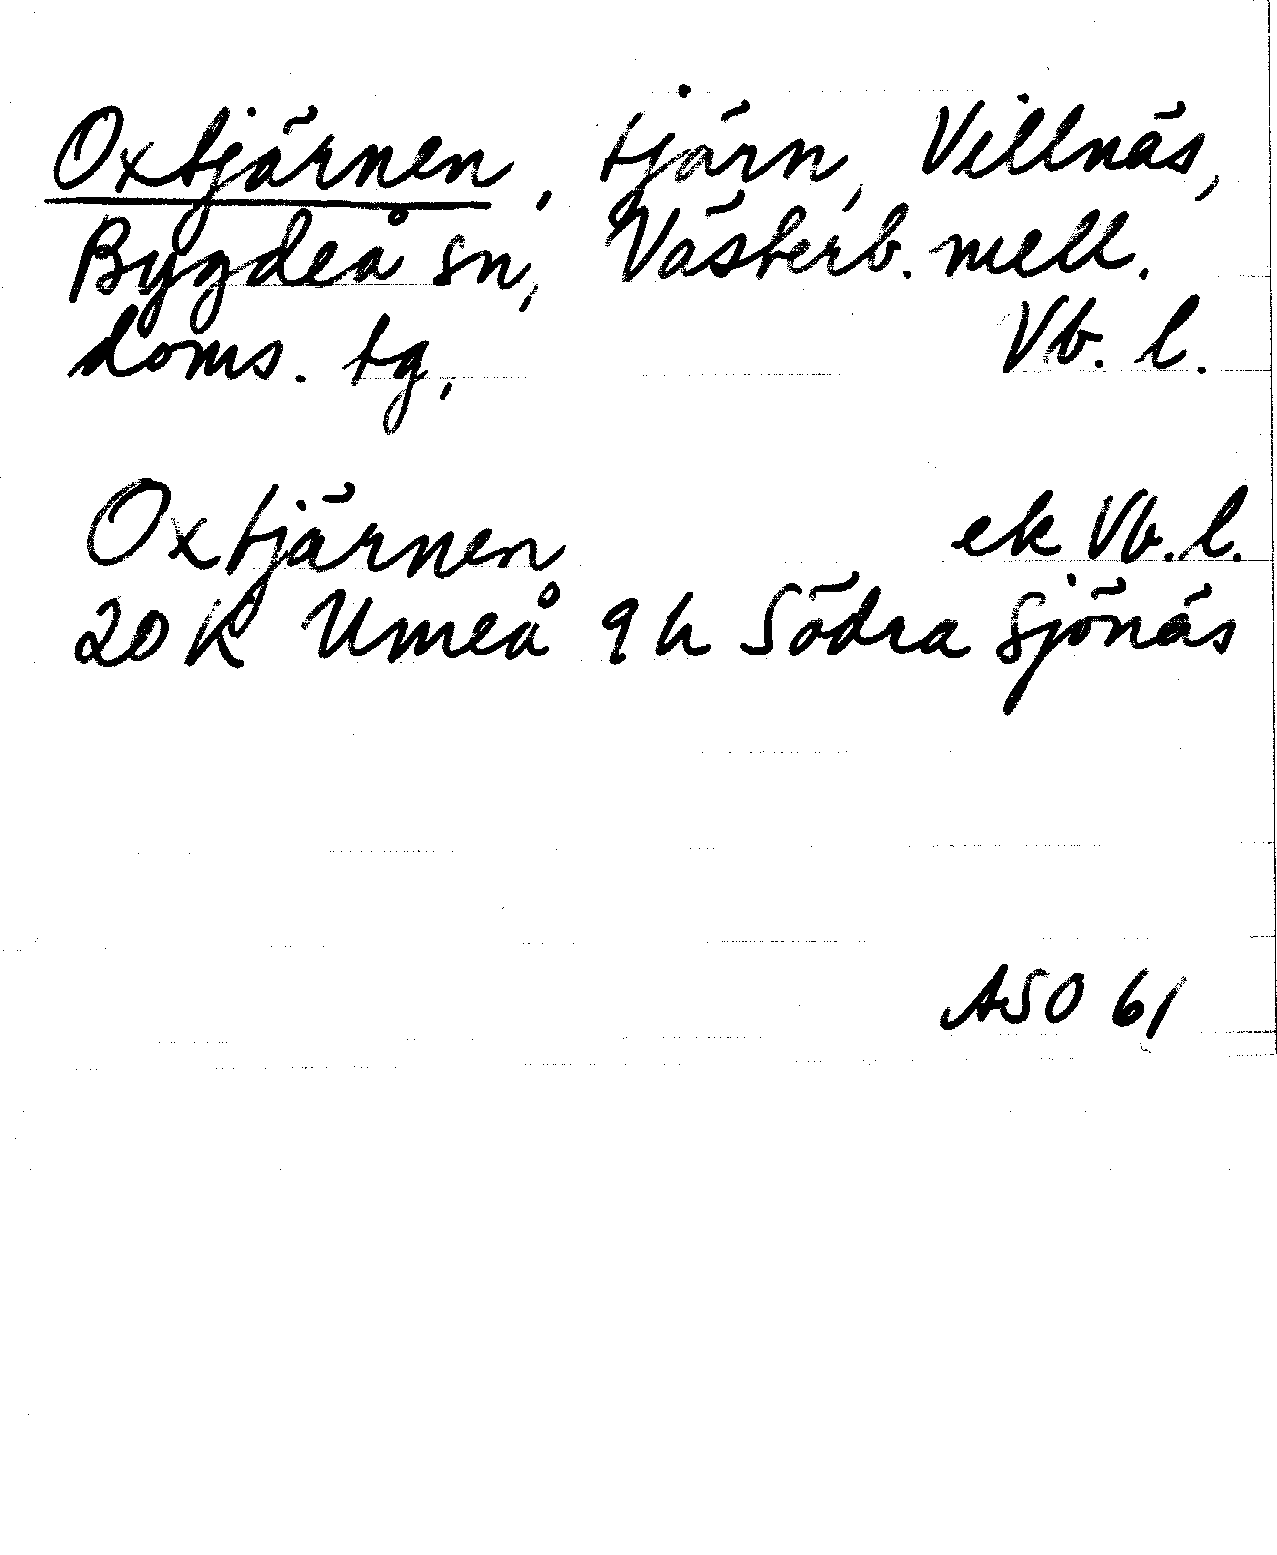 Oxtjärnen, tjärn, Villnäs,
Bygdeå sn, Västerb. mell.
doms. tg, Vb. l.
Oxtjärnen ek Vb. l.
20 K Umeå 9 h Södra Sjönäs
ASO 61